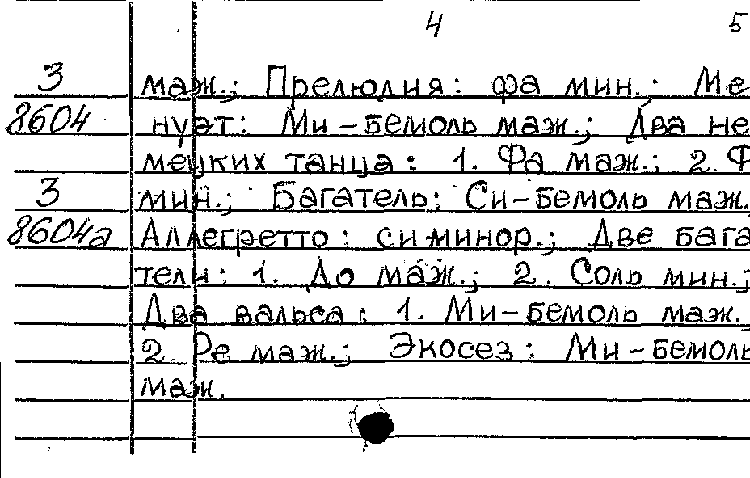 4 5
3 маж.; Прелюдия: фа мин.; Ме
8604 нуэт: Ми-бемоль маж.; Два не
мецких танца: 1. Фа маж.; 2. Ф
3 мин.; Багатель: Си-бемоль маж.
8604а Аллегретто: си минор.; Две бага
тели: 1. До маж.; 2. Соль мин.;
Два вальса: 1. Ми-бемоль маж.;
2 Ре маж.; Экосез: Ми-бемоль
маж.